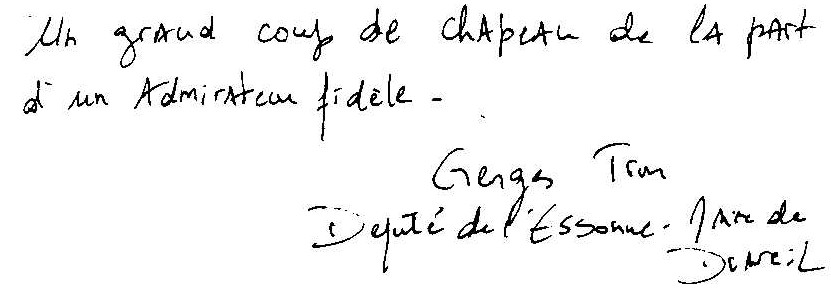 Un grand coup de chapeau de la part
d'un admirateur fidèle -
Georges Tron
Député de l'Essonne - Maire de
Draveil